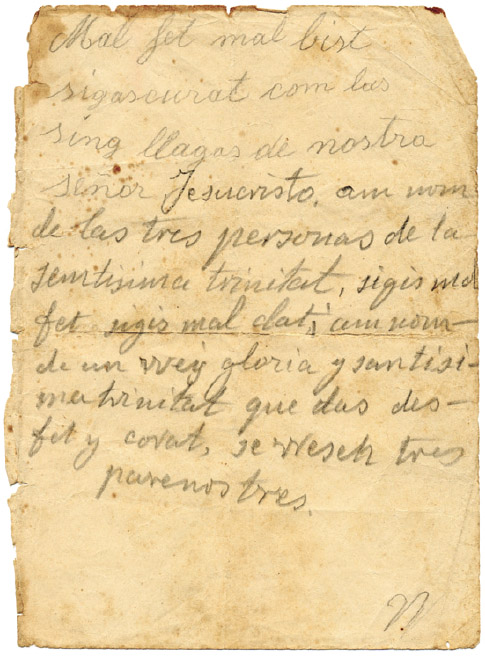 Mal fet mal bist
sigascurat com las
sing llagas de nostra
señor Jesucristo, am nom
de las tres personas de la
semtisima trinitat, sigis mal
fet sigis mal dat, i am nom
de un rrey gloria y santisi-
ma trinitat que das des-
fet y corat, se rresek tres
parenostres.